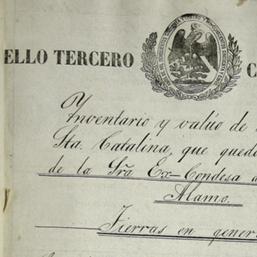 ELLO TERCERO
C
Ynventario y valúo de
Sta. Catalina, que qued
de la Sra Ex-Condesa d
Alamo.
Tierras en gener